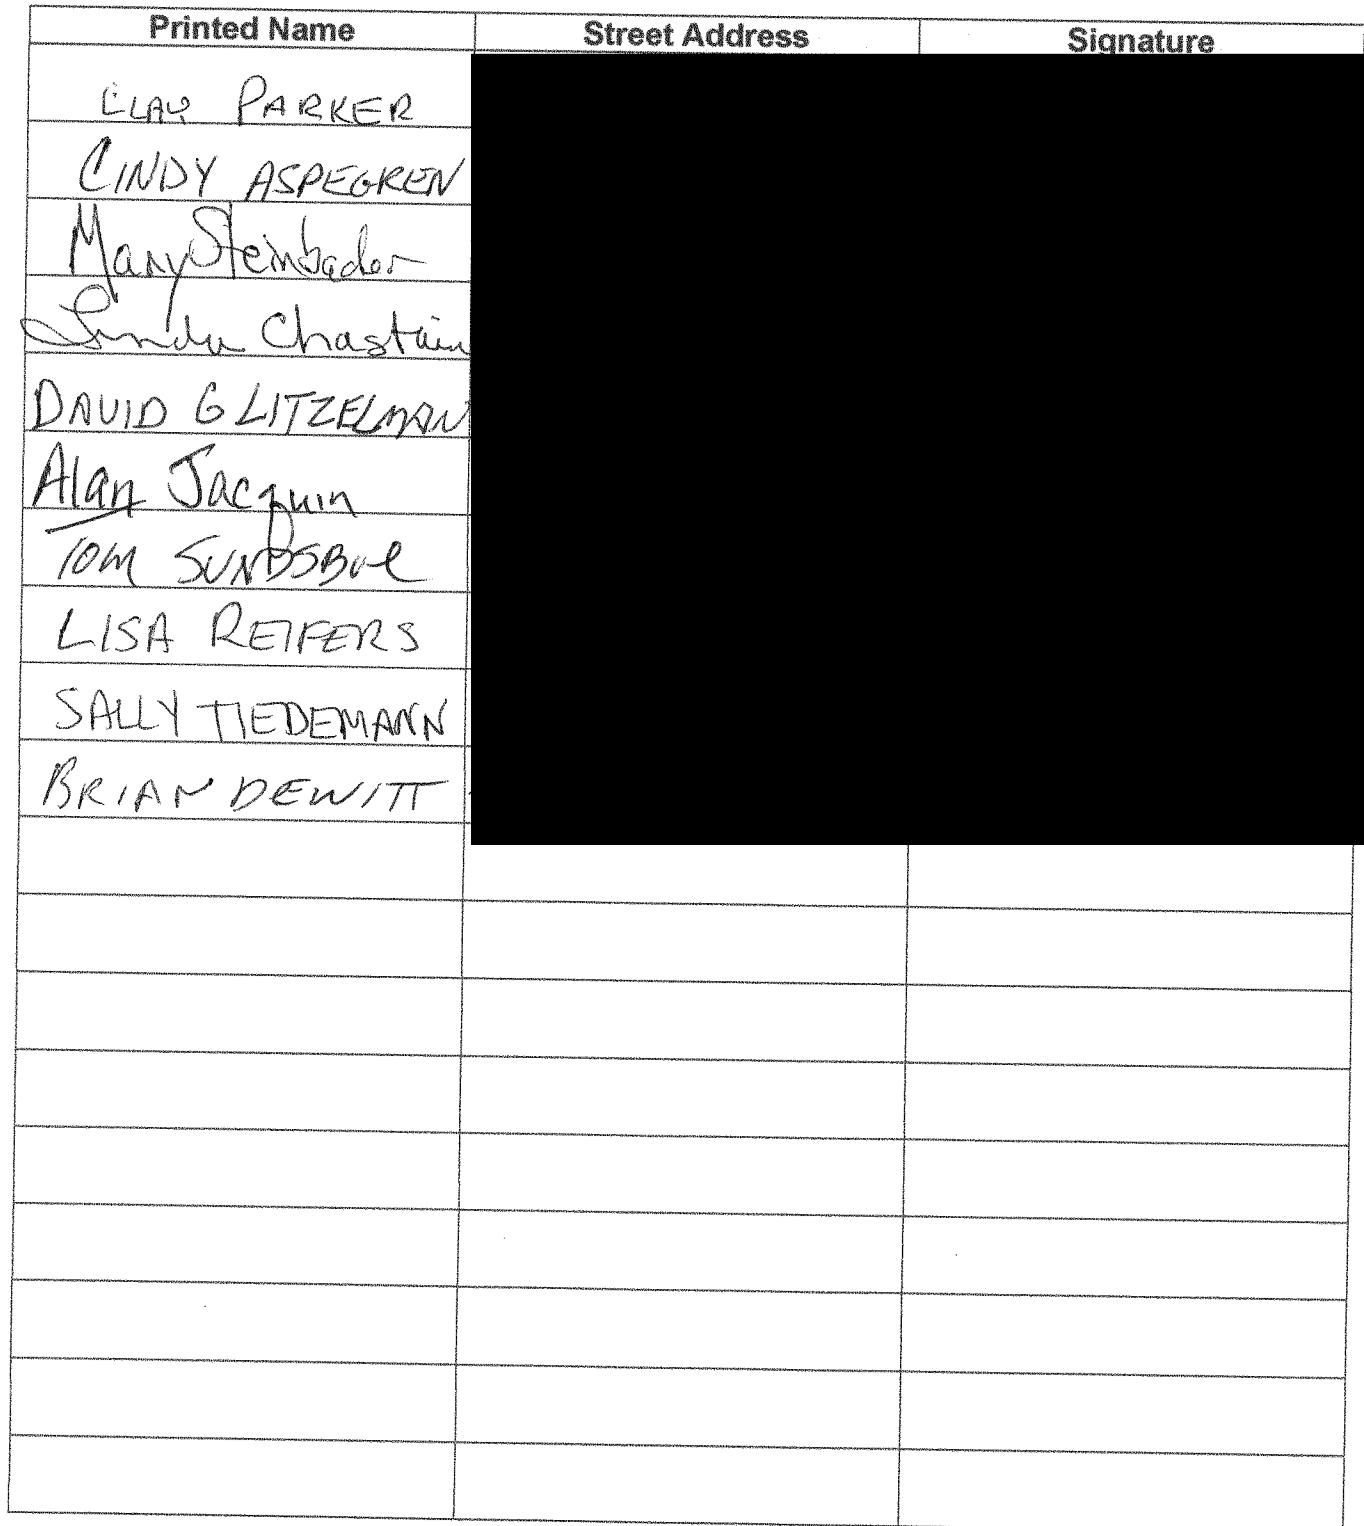 Printed Name Street Address Signature
CLAY PARKER
CINDY ASPEGREN
Mary Steinbader
Linda Chastain
DAVID G LITZELMAN
Alan Jacquin
TOM
LISA REIFERS
SALLY TIEDEMANN
BRIAN DEWITT